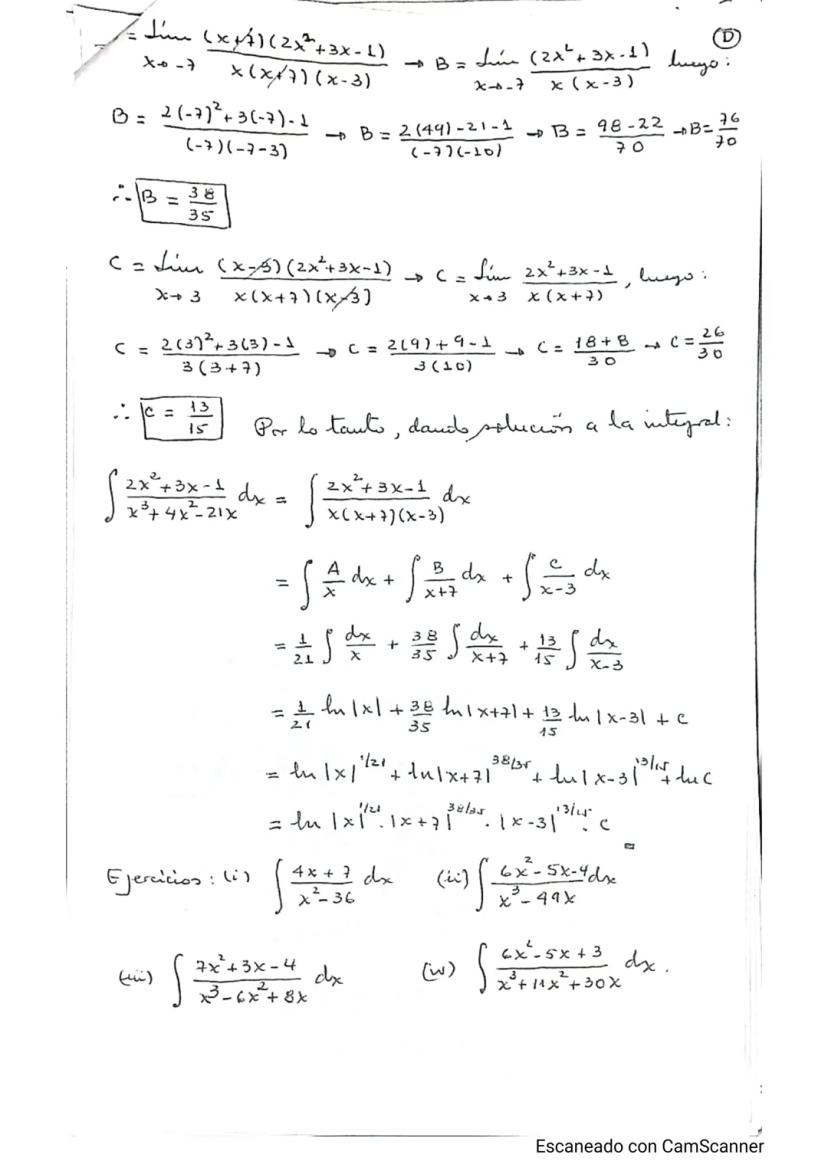 D
= Lím (x+7)(2x²+3x-1) / x(x+7)(x-3) → B = Lím (2x²+3x-1) / x(x-3) luego:
x→-7 x→-7
B = 2(-7)²+3(-7)-1 / (-7)(-7-3) → B = 2(49)-21-1 / (-7)(-10) → B = 98-22 / 70 → B = 76/70
∴ B = 38/35
C = Lím (x-3)(2x²+3x-1) / x(x+7)(x-3) → C = Lím 2x²+3x-1 / x(x+7), luego:
x→3 x→3
C = 2(3)²+3(3)-1 / 3(3+7) → C = 2(9)+9-1 / 3(10) → C = 18+8 / 30 → C = 26/30
∴ C = 13/15 Por lo tanto, dando solución a la integral:
∫ 2x²+3x-1 / x³+4x²-21x dx = ∫ 2x²+3x-1 / x(x+7)(x-3) dx
= ∫ A/x dx + ∫ B/x+7 dx + ∫ C/x-3 dx
= 1/21 ∫ dx/x + 38/35 ∫ dx/x+7 + 13/15 ∫ dx/x-3
= 1/21 ln|x| + 38/35 ln|x+7| + 13/15 ln|x-3| + c
= ln|x|^1/21 + ln|x+7|^38/35 + ln|x-3|^13/15 + ln C
= ln |x|^1/21 . |x+7|^38/35 . |x-3|^13/15 . c
Ejercicios: (i) ∫ 4x+7 / x²-36 dx (ii) ∫ 6x²-5x-4 / x³-49x dx
(iii) ∫ 7x²+3x-4 / x³-6x²+8x dx (iv) ∫ 6x²-5x+3 / x³+11x²+30x dx.
Escaneado con CamScanner